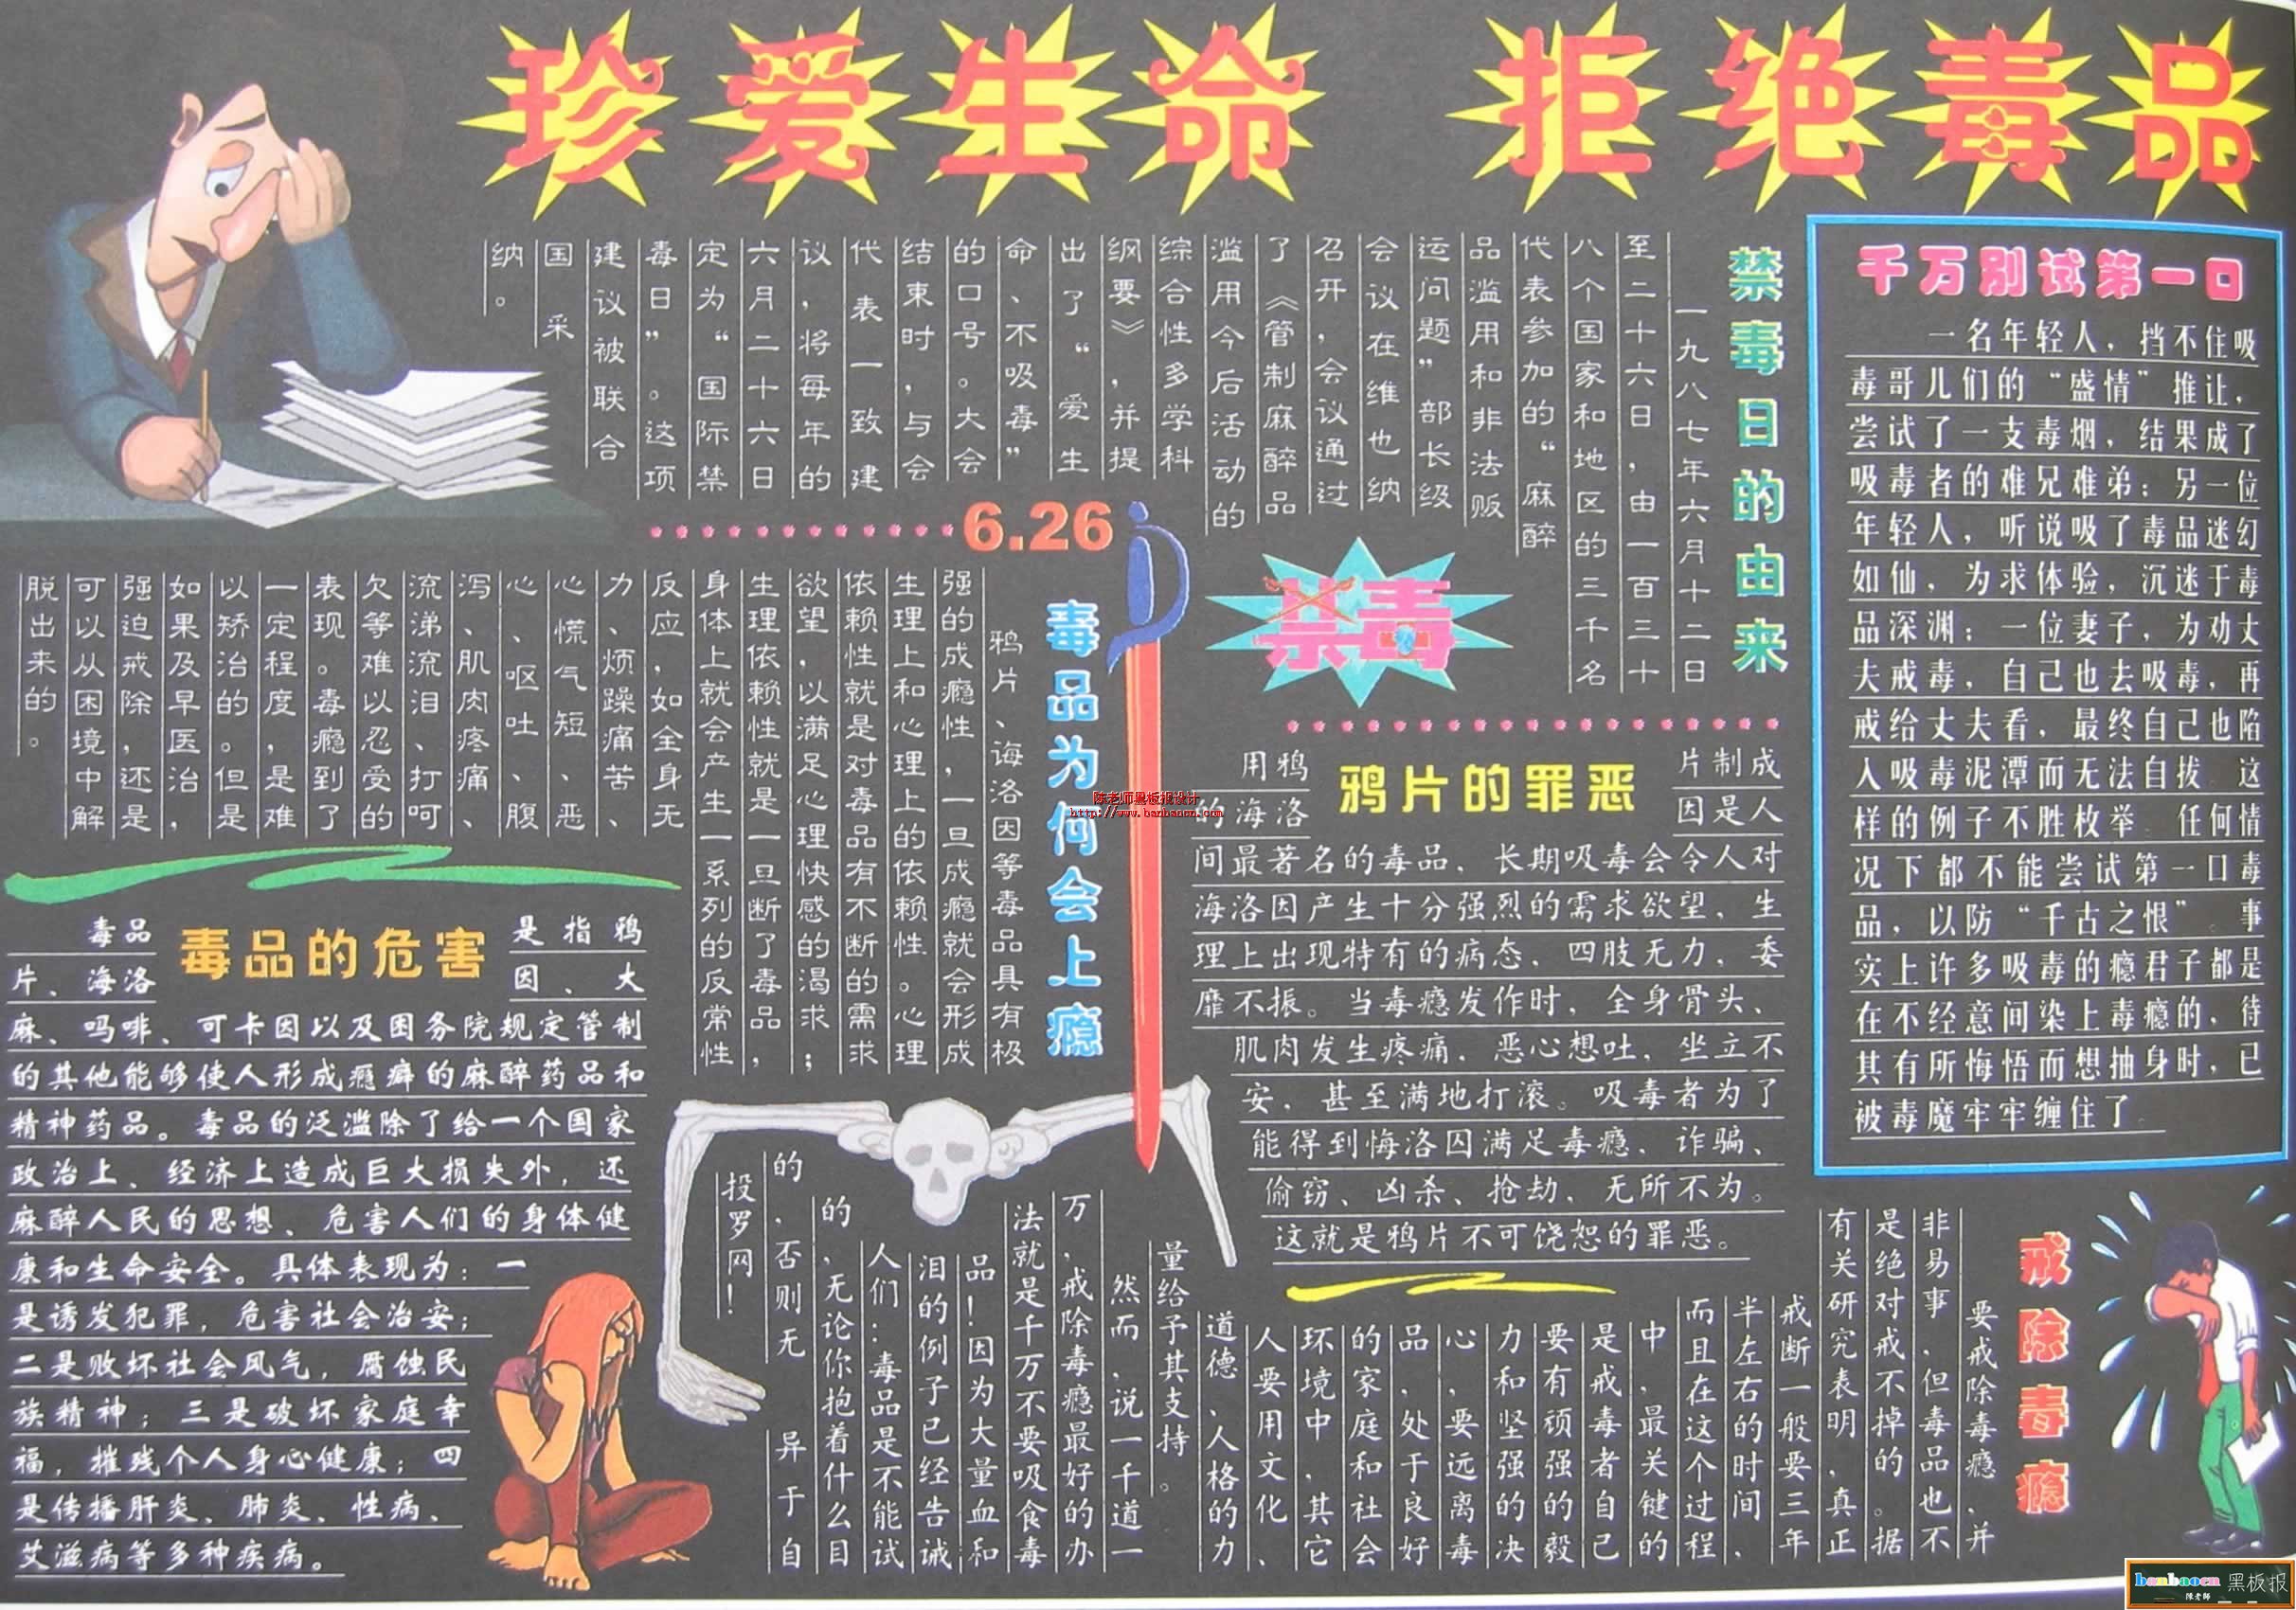 珍爱生命 拒绝毒品
千万别试第一口
一名年轻人，挡不住吸
毒哥儿们的“盛情”推让，
尝试了一支毒烟，结果成了
吸毒者的难兄难弟；另一位
年轻人，听说吸了毒品迷幻
如仙，为求体验，沉迷于毒
品深渊；一位妻子，为劝丈
夫戒毒，自己也去吸毒，再
戒给丈夫看，最终自己也陷
入吸毒泥潭而无法自拔。这
样的例子不胜枚举。任何情
况下都不能尝试第一口毒
品，以防“千古之恨”。事
实上许多吸毒的瘾君子都是
在不经意间染上毒瘾的，待
其有所悔悟而想抽身时，已
被毒魔牢牢缠住了。
禁毒日的由来
一九八七年六月十二日
至二十六日，由一百三十
八个国家和地区的三千名
代表参加的“麻醉
品滥用和非法贩
运问题”部长级
会议在维也纳
召开，会议通过
了《管制麻醉品
滥用今后活动的
综合性多学科
纲要》，并提
出了“爱生
命、不吸毒”
的口号。大会
结束时，与会
代表一致建
议，将每年的
六月二十六日
定为“国际禁
毒日”。这项
建议被联合
国采
纳。
6.26
禁毒
毒品为何会上瘾
鸦片、诲洛因等毒品具有极
强的成瘾性，一旦成瘾就会形成
生理上和心理上的依赖性。心理
依赖性就是对毒品有不断的需求
欲望，以满足心理快感的渴求；
生理依赖性就是一旦断了毒品，
身体上就会产生一系列的反常性
反应，如全身无
力、烦躁痛苦、
心慌气短、恶
心、呕吐、腹
泻、肌肉疼痛、
流涕流泪、打呵
欠等难以忍受的
表现。毒瘾到了
一定程度，是难
以矫治的。但是
如果及早医治，
强迫戒除，还是
可以从困境中解
脱出来的。
鸦片的罪恶
用鸦片制成
的海洛因是人
间最著名的毒品，长期吸毒会令人对
海洛因产生十分强烈的需求欲望，生
理上出现特有的病态，四肢无力，委
靡不振。当毒瘾发作时，全身骨头、
肌肉发生疼痛，恶心想吐，坐立不
安，甚至满地打滚。吸毒者为了
能得到悔洛因满足毒瘾，诈骗、
偷窃、凶杀、抢劫，无所不为。
这就是鸦片不可饶恕的罪恶。
毒品的危害
毒品是指鸦
片、海洛因、大
麻、吗啡、可卡因以及国务院规定管制
的其他能够使人形成瘾癖的麻醉药品和
精神药品。毒品的泛滥除了给一个国家
政治上、经济上造成巨大损失外，还
麻醉人民的思想、危害人们的身体健
康和生命安全。具体表现为：一
是诱发犯罪，危害社会治安；
二是败坏社会风气，腐蚀民
族精神；三是破坏家庭幸
福，摧残个人身心健康；四
是传播肝炎、肺炎、性病、
艾滋病等多种疾病。
戒除毒瘾
要戒除毒瘾，并
非易事，但毒品也不
是绝对戒不掉的。据
有关研究表明，真正
戒断一般要三年
半左右的时间，
而且在这个过程
中，最关键的
是戒毒者自己
要有顽强的毅
力和坚强的决
心，要远离毒
品，处于良好
的家庭和社会
环境中，其它
人要用文化、
道德、人格的力
量给予其支持。
然而，说一千道一
万，戒除毒瘾最好的办
法就是千万不要吸食毒
品！因为大量血和
泪的例子已经告诫
人们：毒品是不能试
的，无论你抱着什么目
的，否则无异于自
投罗网！
陈老师黑板报设计
http://www.banbaocn.com
banbaocn 黑板报
陈老师